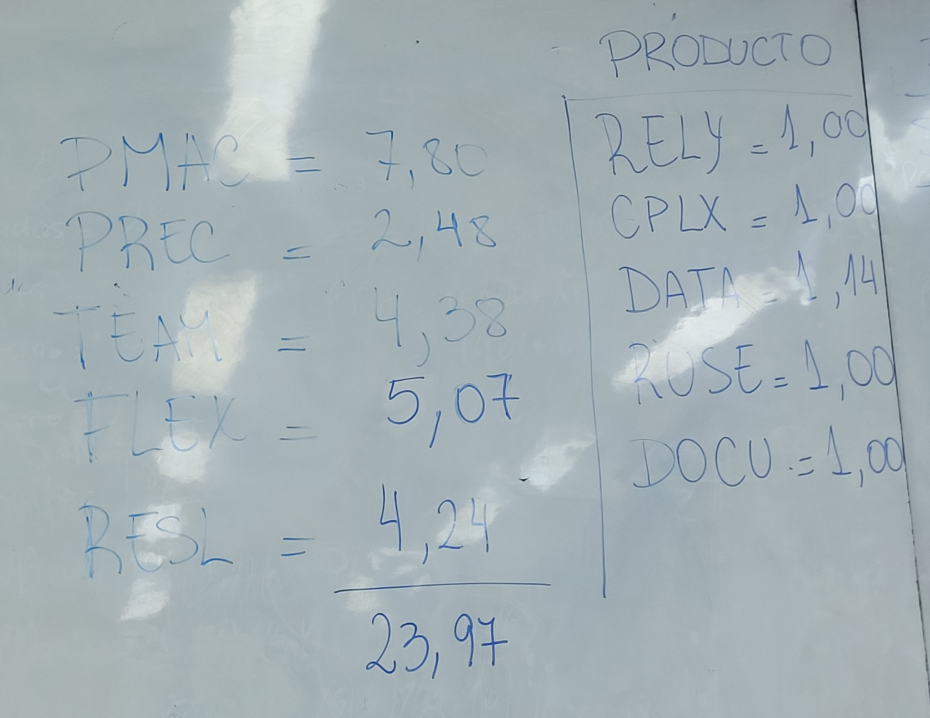 PMAC = 7,80
PREC = 2,48
TEAM = 4,38
FLEX = 5,07
RESL = 4,24
23,97
PRODUCTO
RELY = 1,00
CPLX = 1,00
DATA = 1,14
RUSE = 1,00
DOCU = 1,00